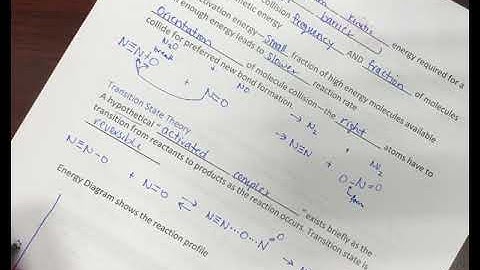 kinetic
barrier energy required for a
collision frequency AND fraction of molecules
activation energy - small fraction of high energy molecules available
enough energy leads to slower reaction rate
Orientation of molecule collision - the right atoms have to
collide for preferred new bond formation.
N2O + NO → N2 +
N≡N-O break + N=O → N≡N + O-N=O
Transition State Theory
A hypothetical "activated complex" exists briefly as the
transition from reactants to products as the reaction occurs. Transition state is
reversible
N≡N-O + N=O ⇌ N≡N···O···N=O → N
Energy Diagram shows the reaction profile